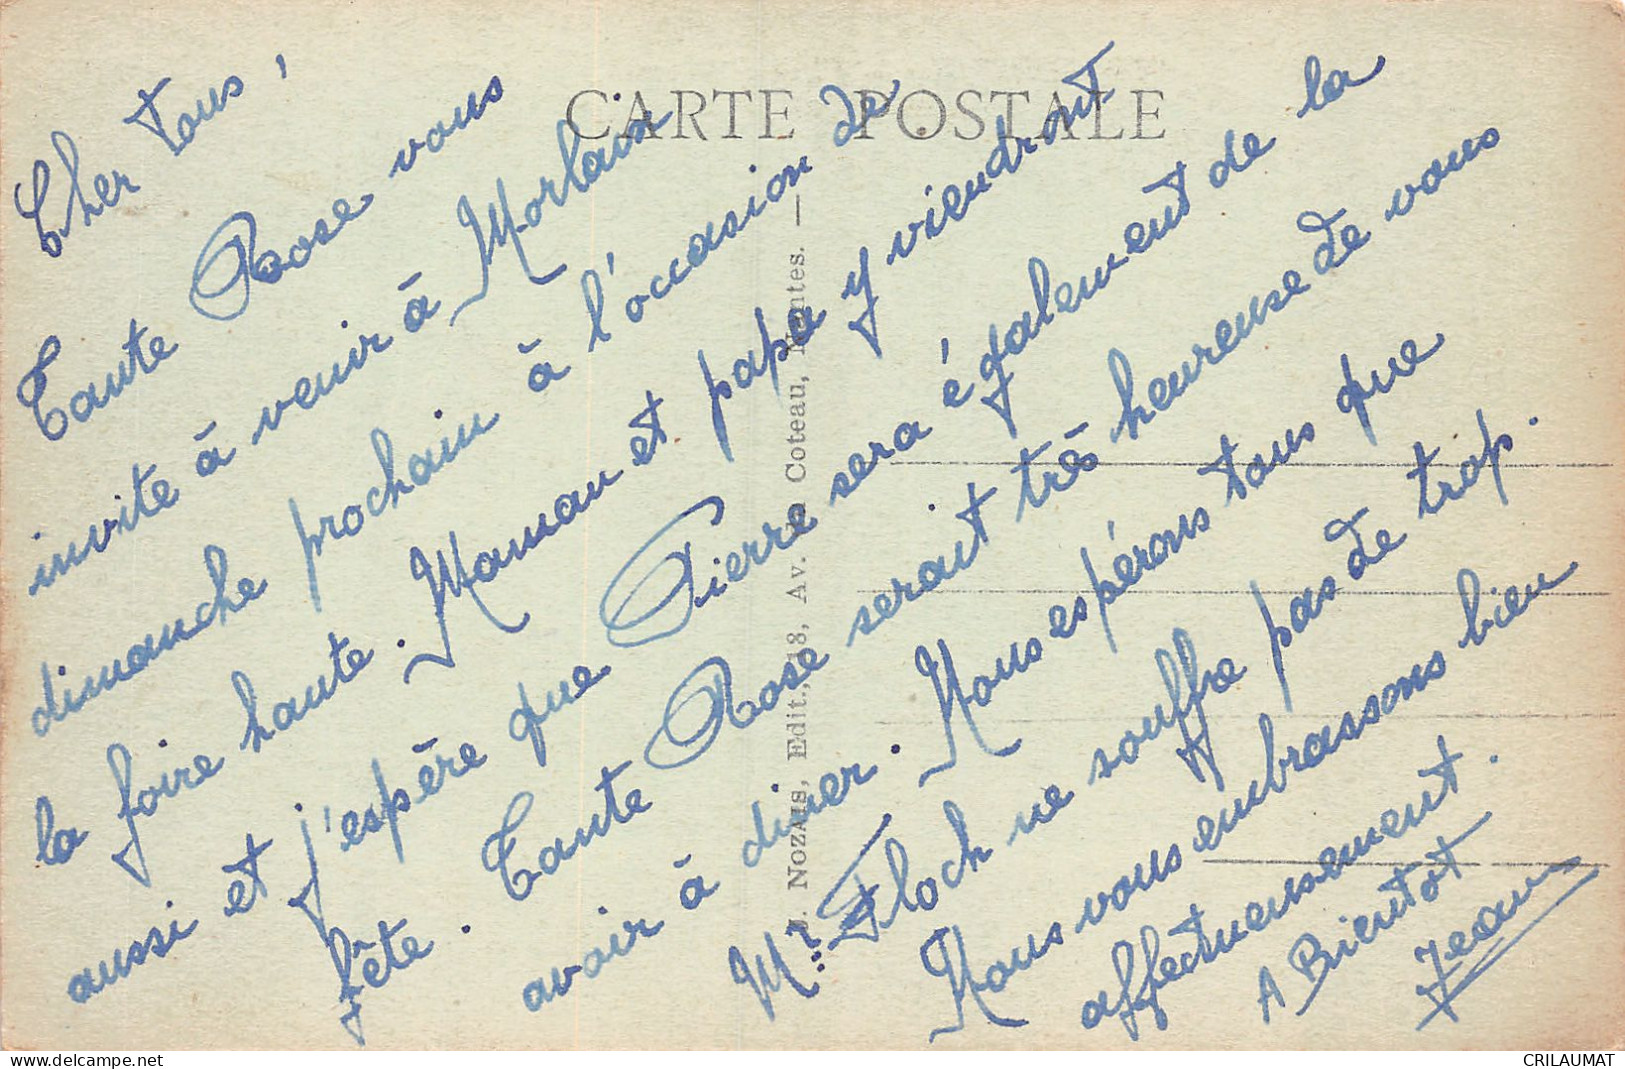 CARTE POSTALE
Cher tous,
Tante Rose vous
invite à venir à Morlaix
dimanche prochain à l'occasion de
la foire haute. Maman et papa y viendront
aussi et j'espère que Pierre sera également de la
fête. Tante Rose serait très heureuse de vous
avoir à diner. Nous espérons tous que
Mr Floch ne souffre pas de trop.
Nous vous embrassons bien
affectueusement.
A Bientot
Jean
Nozais, Edit., 18, Av. du Coteau, Nantes. —
delcampe.net
CRILAUMAT